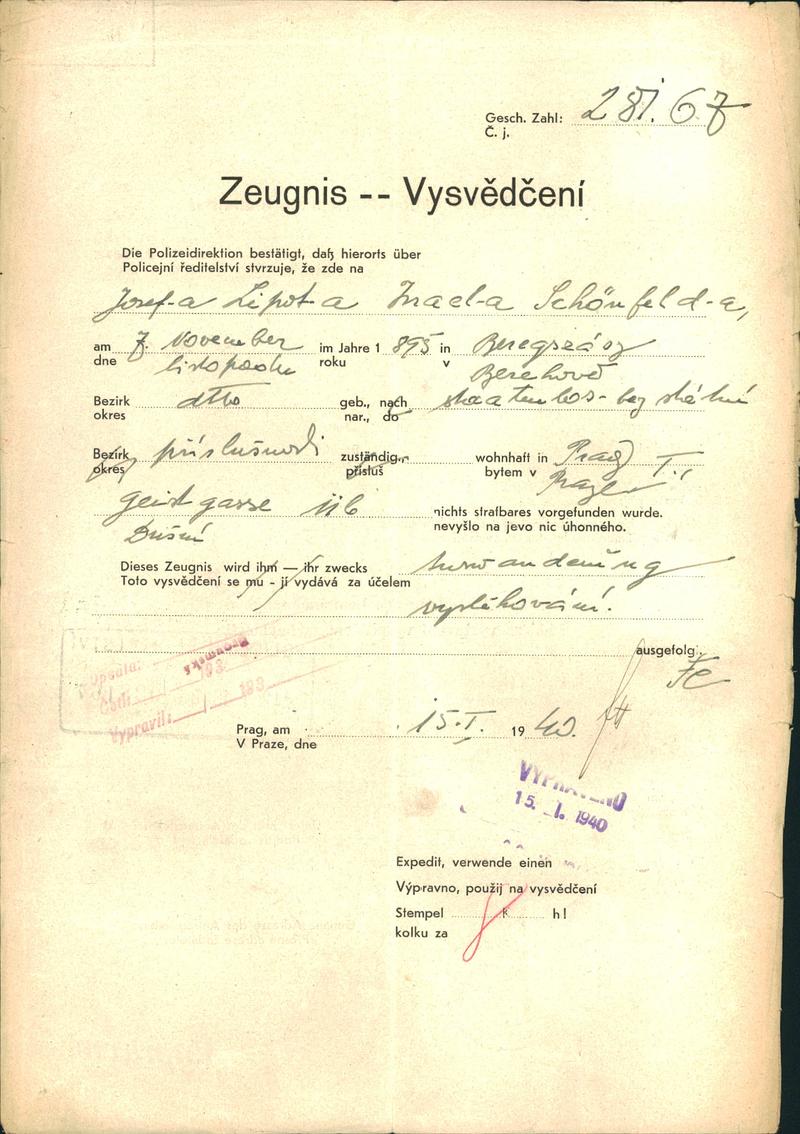 Gesch. Zahl: 281.67
Č. j.
Zeugnis -- Vysvědčení
Die Polizeidirektion bestätigt, daß hierorts über
Policejní ředitelství stvrzuje, že zde na
Josef-a Lipót-a Israel-a Schönfeld-a,
am 7. November im Jahre 1 895 in Beregszász
dne listopadu roku v Berehově
Bezirk dtto geb., nach staatenlos - bez státní
okres nar., do
Bezirk příslušnosti zuständig, wohnhaft in Prag I.,
okres přísluš bytem v Praze
Geistgasse
Dušní
nichts strafbares vorgefunden wurde.
nevyšlo na jevo nic úhonného.
Dieses Zeugnis wird ihm — ihr zwecks
Toto vysvědčení se mu - jí vydává za účelem
vystěhování.
ausgefolg.
Prag, am 15.I. 19 40.
V Praze, dne
Došlo:
Vypravil: 193
VYPRAVENO
15. I. 1940
Expedit, verwende einen
Výpravno, použij na vysvědčení
Stempel K h!
kolku za